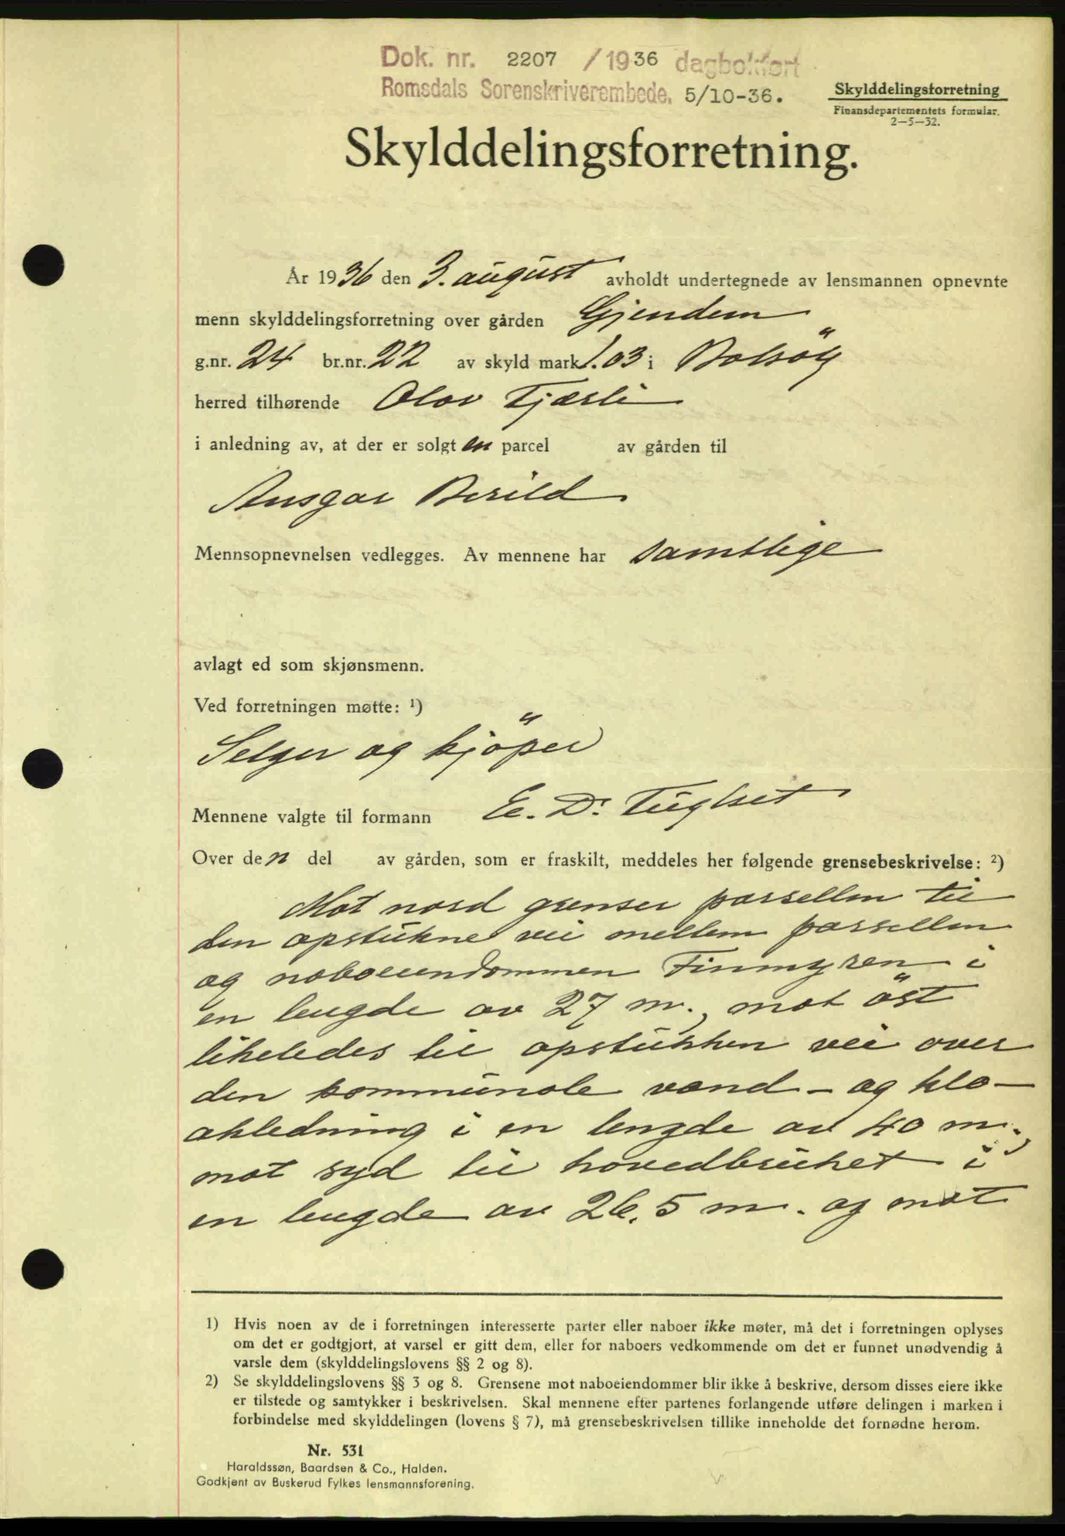 Dok. nr. 2207 / 1936 dagbokført
Romsdals Sorenskriverembede, 5/10-36.
Skylddelingsforretning
Finansdepartementets formular.
2—5—32.
Skylddelingsforretning.
År 1936 den 3. august avholdt undertegnede av lensmannen opnevnte
menn skylddelingsforretning over gården Gjendem
g.nr. 24 br.nr. 22 av skyld mark 1.03 i Bolsöy
herred tilhørende Olav Fjærli
i anledning av, at der er solgt en parcel av gården til
Ansgar Berild
Mennsopnevnelsen vedlegges. Av mennene har samtlige
avlagt ed som skjønsmenn.
Ved forretningen møtte: ¹)
Selger og kjöper
Mennene valgte til formann E. D. Fuglset
Over den del av gården, som er fraskilt, meddeles her følgende grensebeskrivelse: ²)
Mot nord grenser parsellen til
den opstukne vei mellem parsellen
og naboeiendommen Finmyren i
en lengde av 27 m., mot öst
likeledes til opstukken vei over
den kommunale vand- og klo-
akledning i en lengde av 40 m.,
mot syd til hovedbruket i
en lengde av 26,5 m. og mot
1) Hvis noen av de i forretningen interesserte parter eller naboer ikke møter, må det i forretningen oplyses
om det er godtgjort, at varsel er gitt dem, eller for naboers vedkommende om det er funnet unødvendig å
varsle dem (skylddelingslovens §§ 2 og 8).
2) Se skylddelingslovens §§ 3 og 8. Grensene mot naboeiendommer blir ikke å beskrive, dersom disses eiere ikke
er tilstede og samtykker i beskrivelsen. Skal mennene efter partenes forlangende utføre delingen i marken i
forbindelse med skylddelingen (lovens § 7), må grensebeskrivelsen tillike inneholde det fornødne herom.
Nr. 531
Haraldssøn, Baardsen & Co., Halden.
Godkjent av Buskerud Fylkes lensmannsforening.